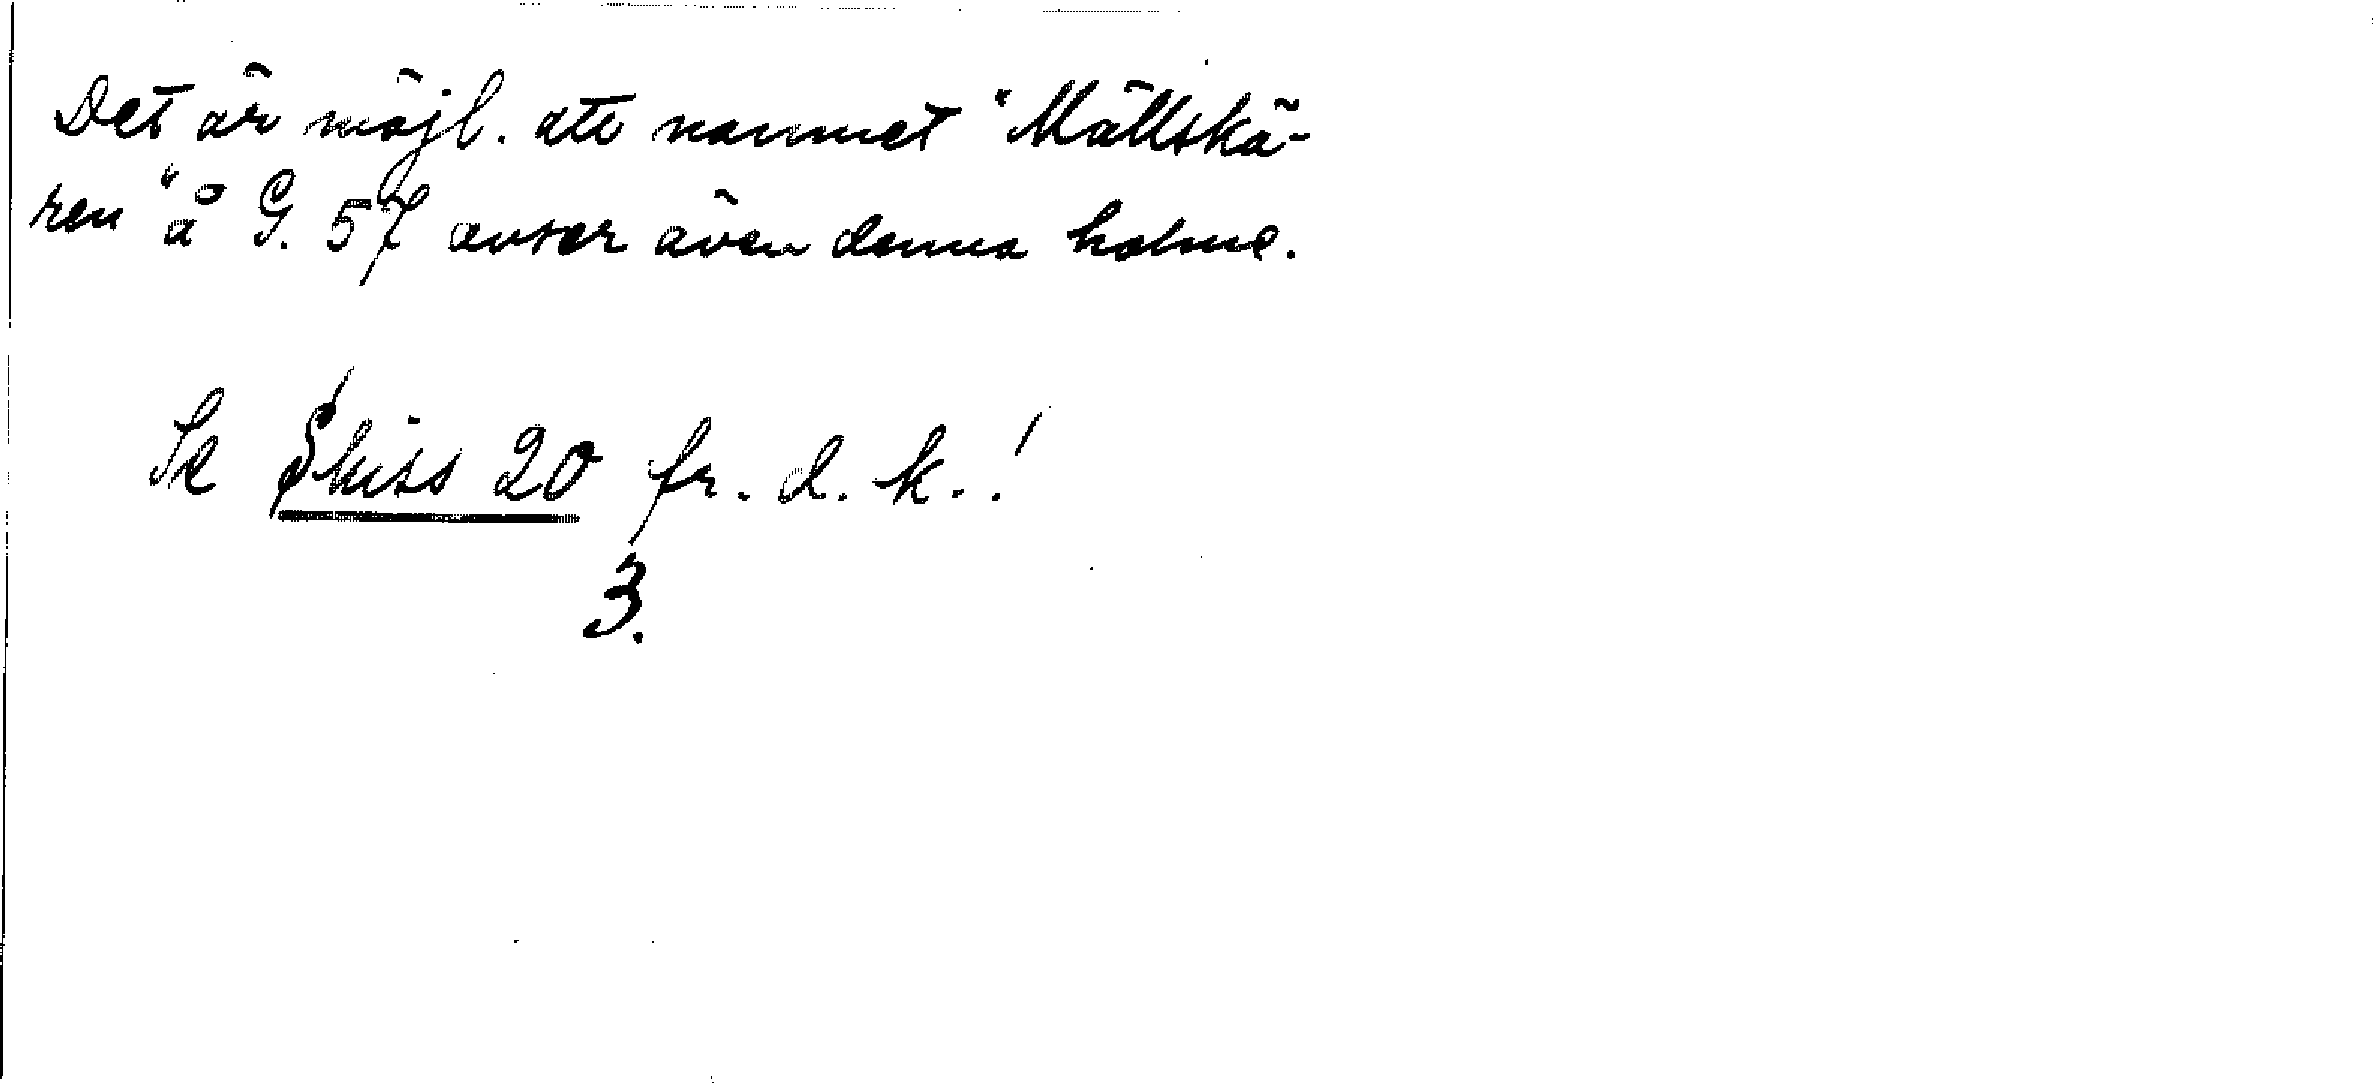 Det är möjl. att namnet "Mällskä-
ren" å G. 57 avser även denna holme.
Se Skiss 20 fr. d. k.!
3.